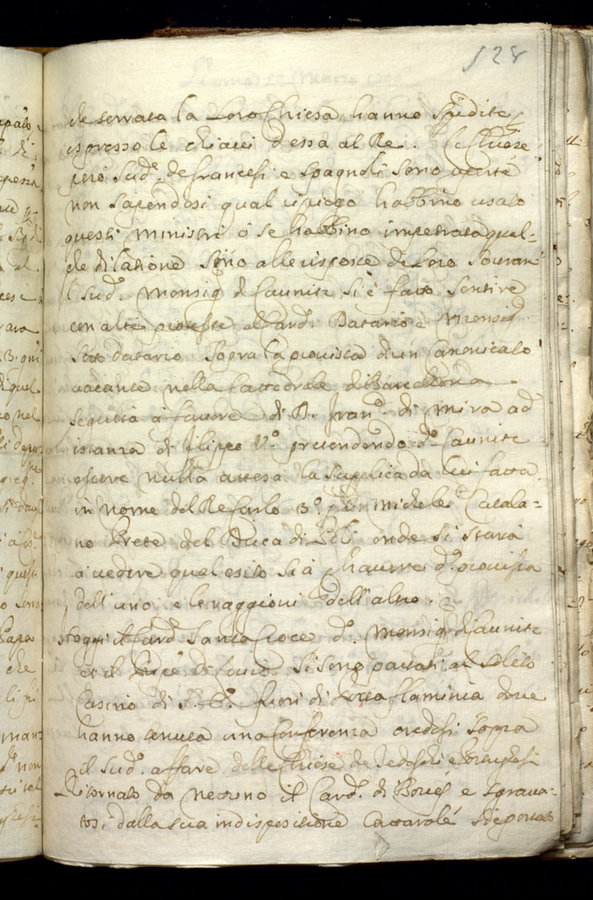 128
de serrata la Loro Chiesa hanno spedite
espresso le chiavi d'essa al Re. Le Chiese
però sud.e de francesi e Spagnoli sono aperte
non sapendosi qual ripiego habbino usato
questi Ministri ò se habbino impetrato qual-
che dilatione sino alle risposte di Loro Sourani
Il sud.o Monsig. d Caunitz si è fatto sentire
con alte proteste al Card. Datario e Monsig.
Sotto datario sopra la provista di un Canonicato
vacante nella Cattedrale di Barcellona
seguita à favore di D. Fran.o di Mira ad
istanza di Filippo V.o pretendendo d.o Caunitz
essere nulla attesa la supplica da lui fatta
in nome del Re Carlo 3.o Michele Catala-
no Prete del Duca di onde si starà
à vedere qual esito sia p havere d.a provista
dell'uno, e le raggioni dell'altro.
Hoggi il Card. Santa Croce d.o Monsig. d Caunitz
et il si sono portati al solito
Casino di S. B. fuori di Porta flaminia dove
hanno tenuta una conferenza credesi sopra
il sud.o affare delle Chiese de Tedeschi e
Ritornato da Nettuno il Card. di e sgrava-
tosi dalla sua indispositione Cattarale si è portato